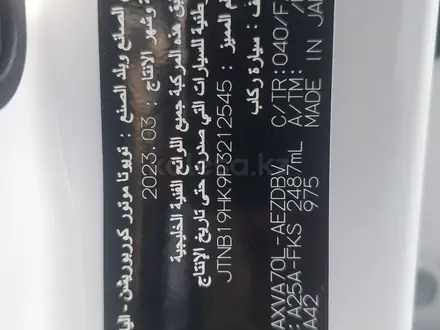 الصانع وبلد الصنع : تويوتا موتور كوربوريشن - اليا
وشهر الإنتاج : 03 :2023
هذه المركبة جميع اللوائح الفنية الخليجية
للسيارات التي صدرت حتى تاريخ الإنتاج
المميز: JTNB19HK9P3212545
: سيارة ركاب
AXVA70L-AEZDBV C/TR: 040/F
A25A-FKS 2487mL A/TM:
A42 975 MADE IN JA